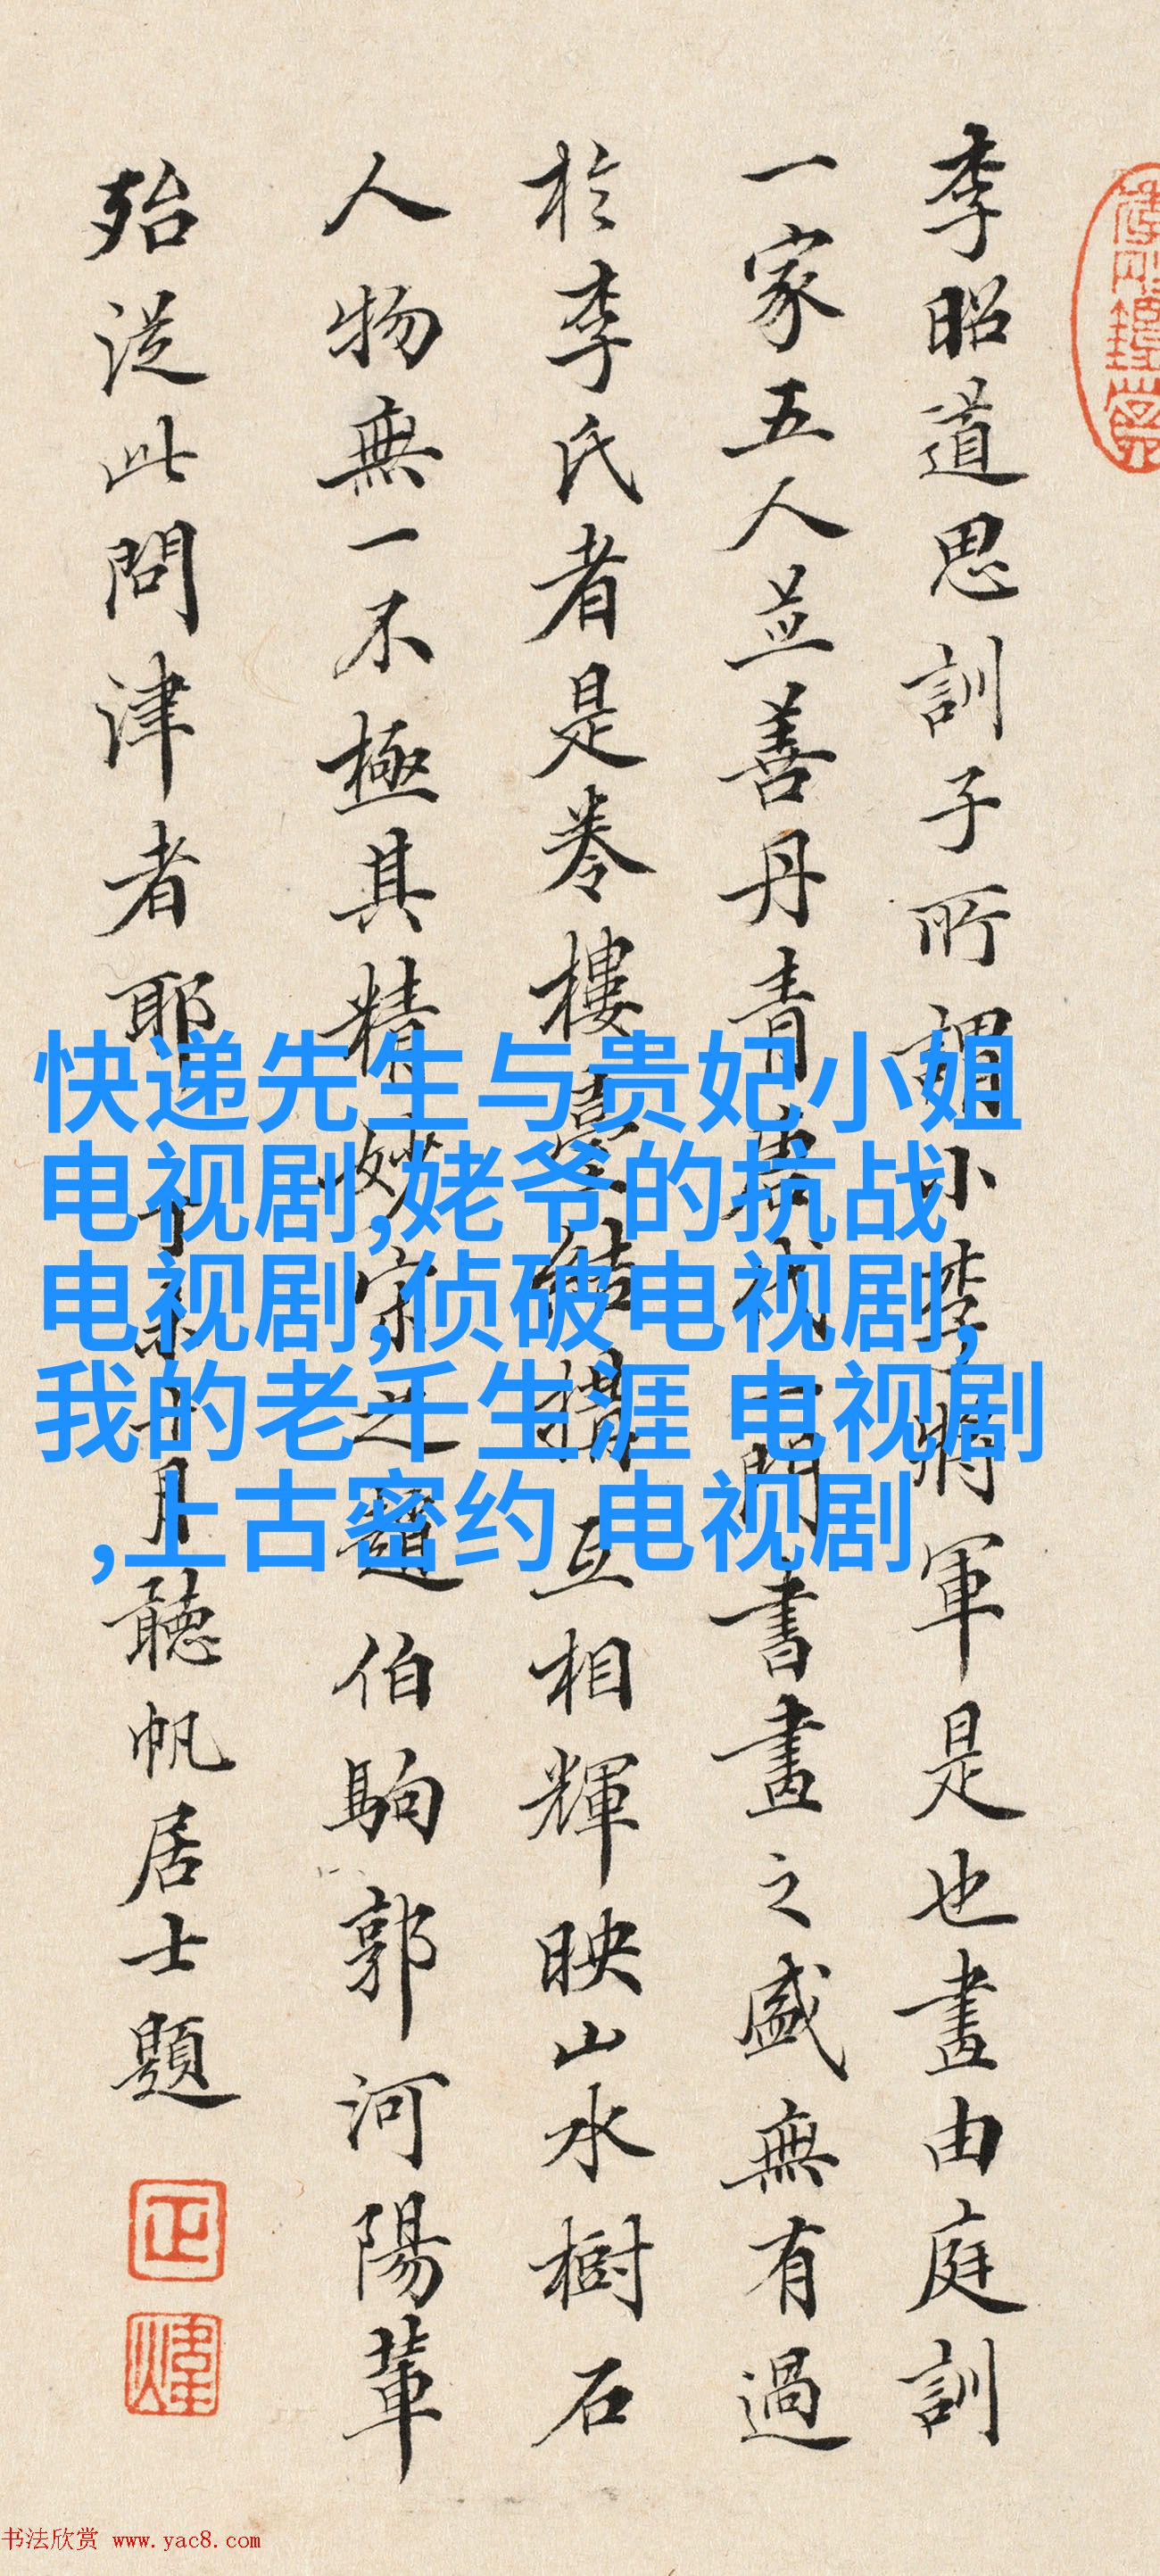 李昭道思訓子所謂小李將軍是也畫由庭訓
一家五人並善丹青奕世一門書畫之盛無有過
於李氏者是卷樓臺結構互相輝映山水樹石
人物無一不極其精妙宋之趙伯駒郭河陽輩
殆從此問津者耶 月聽帆居士題
快递先生与贵妃小姐
电视剧,姥爷的抗战
电视剧,侦破电视剧,
我的老千生涯 电视剧
,上古密约 电视剧
书法欣赏 www.yac8.com